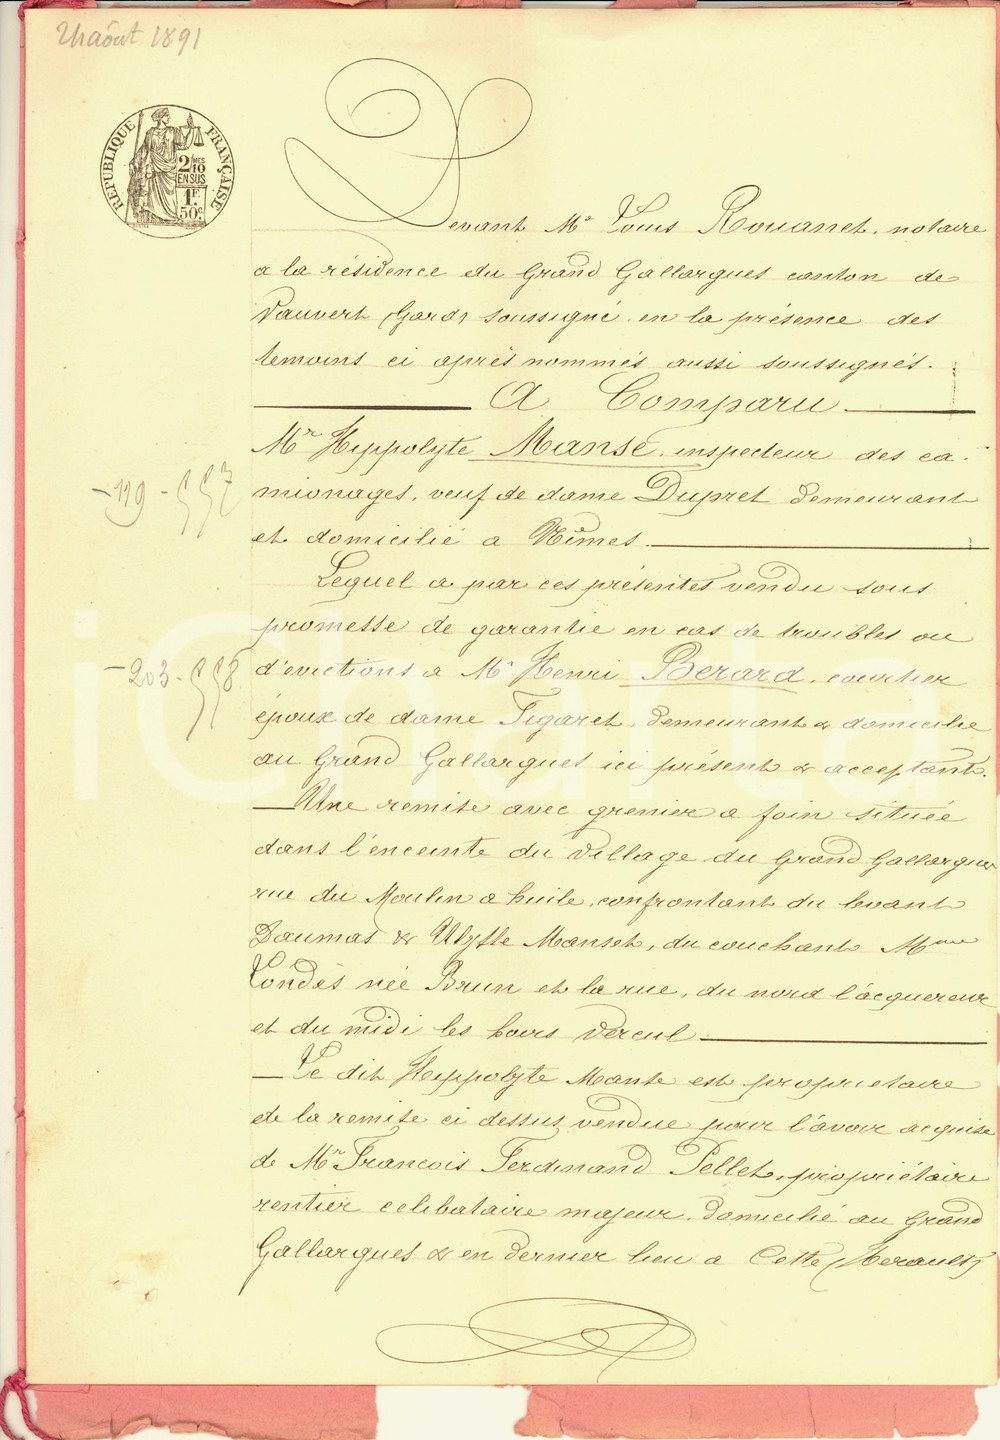 août 1891
RÉPUBLIQUE FRANÇAISE
2/10 MES
EN SUS
1F.
50c.
Devant Me Louis Rouanet, notaire
a la résidence du Grand Gallargues canton de
Vauvert (Gard) soussigné en la présence des
temoins ci après nommés aussi soussignés.
A Comparu
Mr Hippolyte Manse, inspecteur des ca-
mionages, veuf de dame Dupret demeurant
-119-557
et domicilié a Nîmes.
Lequel a par ces présentes vendu sous
promesse de garantie en cas de troubles ou
d'evictions a Mr Henri Berard, courtier
-203-558
époux de dame Figaret, demeurant & domicilie
au Grand Gallargues ici présent & acceptant.
Une remise avec grenier a foin située
dans l'enceinte du village du Grand Gallargues
rue du Moulin a huile, confrontant du levant
Daumas & Ulysse Manset, du couchant Mme
née Brun et la rue, du nord l'acquereur
et du midi les hoirs
Le dit Hippolyte Manse est proprietaire
de la remise ci dessus vendue pour l'avoir acquise
de Mr Francois Ferdinand Pellet, propriétaire
rentier celibataire majeur, domicilié au Grand
Gallargues & en dernier lieu a Cette (Herault)